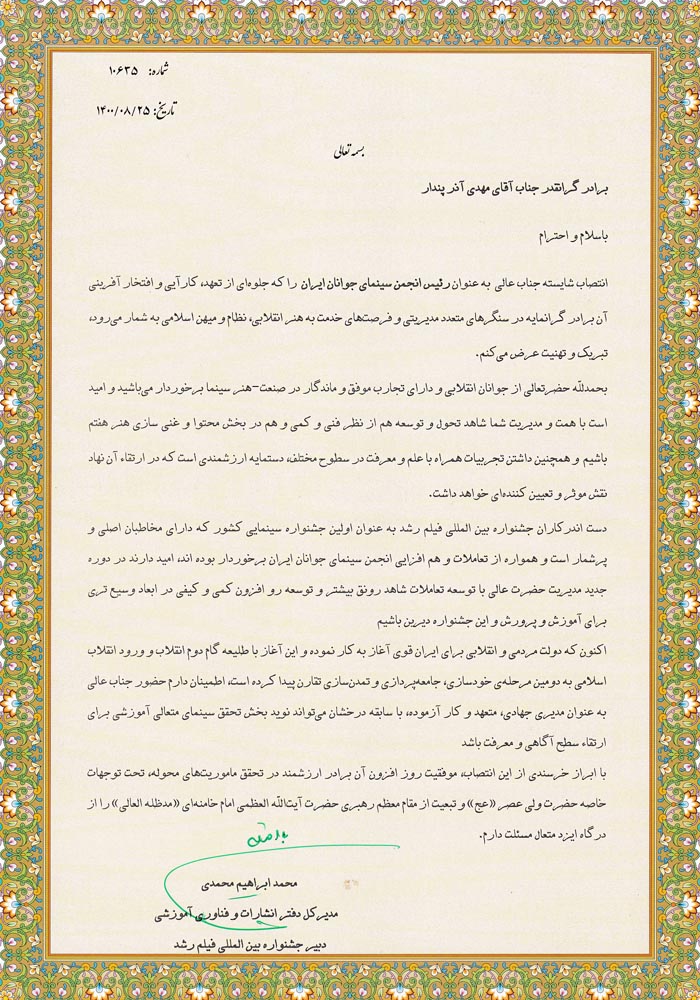 شماره: ۱۰۶۳۵
تاریخ: ۱۴۰۰/۰۸/۲۵
بسمه تعالی
برادر گرانقدر جناب آقای مهدی آذر پندار
باسلام و احترام
انتصاب شایسته جناب عالی به عنوان رئیس انجمن سینمای جوانان ایران را که جلوه‌ای از تعهد، کارآیی و افتخار آفرینی
آن برادر گرانمایه در سنگرهای متعدد مدیریتی و فرصت‌های خدمت به هنر انقلابی، نظام و میهن اسلامی به شمار می‌رود،
تبریک و تهنیت عرض می‌کنم.
بحمدلله حضرتعالی از جوانان انقلابی و دارای تجارب موفق و ماندگار در صنعت-هنر سینما برخوردار می‌باشید و امید
است با همت و مدیریت شما شاهد تحول و توسعه هم از نظر فنی و کمی و هم در بخش محتوا و غنی سازی هنر هفتم
باشیم و همچنین داشتن تجربیات همراه با علم و معرفت در سطوح مختلف، دستمایه ارزشمندی است که در ارتقاء آن نهاد
نقش موثر و تعیین کننده‌ای خواهد داشت.
دست اندرکاران جشنواره بین المللی فیلم رشد به عنوان اولین جشنواره سینمایی کشور که دارای مخاطبان اصلی و
پرشمار است و همواره از تعاملات و هم افزایی انجمن سینمای جوانان ایران برخوردار بوده اند، امید دارند در دوره
جدید مدیریت حضرت عالی با توسعه تعاملات شاهد رونق بیشتر و توسعه رو افزون کمی و کیفی در ابعاد وسیع تری
برای آموزش و پرورش و این جشنواره دیرین باشیم
اکنون که دولت مردمی و انقلابی برای ایران قوی آغاز به کار نموده و این آغاز با طلیعه گام دوم انقلاب و ورود انقلاب
اسلامی به دومین مرحله‌ی خودسازی، جامعه‌پردازی و تمدن‌سازی تقارن پیدا کرده است، اطمینان دارم حضور جناب عالی
به عنوان مدیری جهادی، متعهد و کار آزموده، با سابقه درخشان می‌تواند نوید بخش تحقق سینمای متعالی آموزشی برای
ارتقاء سطح آگاهی و معرفت باشد
با ابراز خرسندی از این انتصاب، موفقیت روز افزون آن برادر ارزشمند در تحقق ماموریت‌های محوله، تحت توجهات
خاصه حضرت ولی عصر «عج» و تبعیت از مقام معظم رهبری حضرت آیت‌الله العظمی امام خامنه‌ای «مدظله العالی» را از
درگاه ایزد متعال مسئلت دارم.
محمد ابراهیم محمدی
مدیرکل دفتر انشارات و فناوری آموزشی
دبیر جشنواره بین المللی فیلم رشد